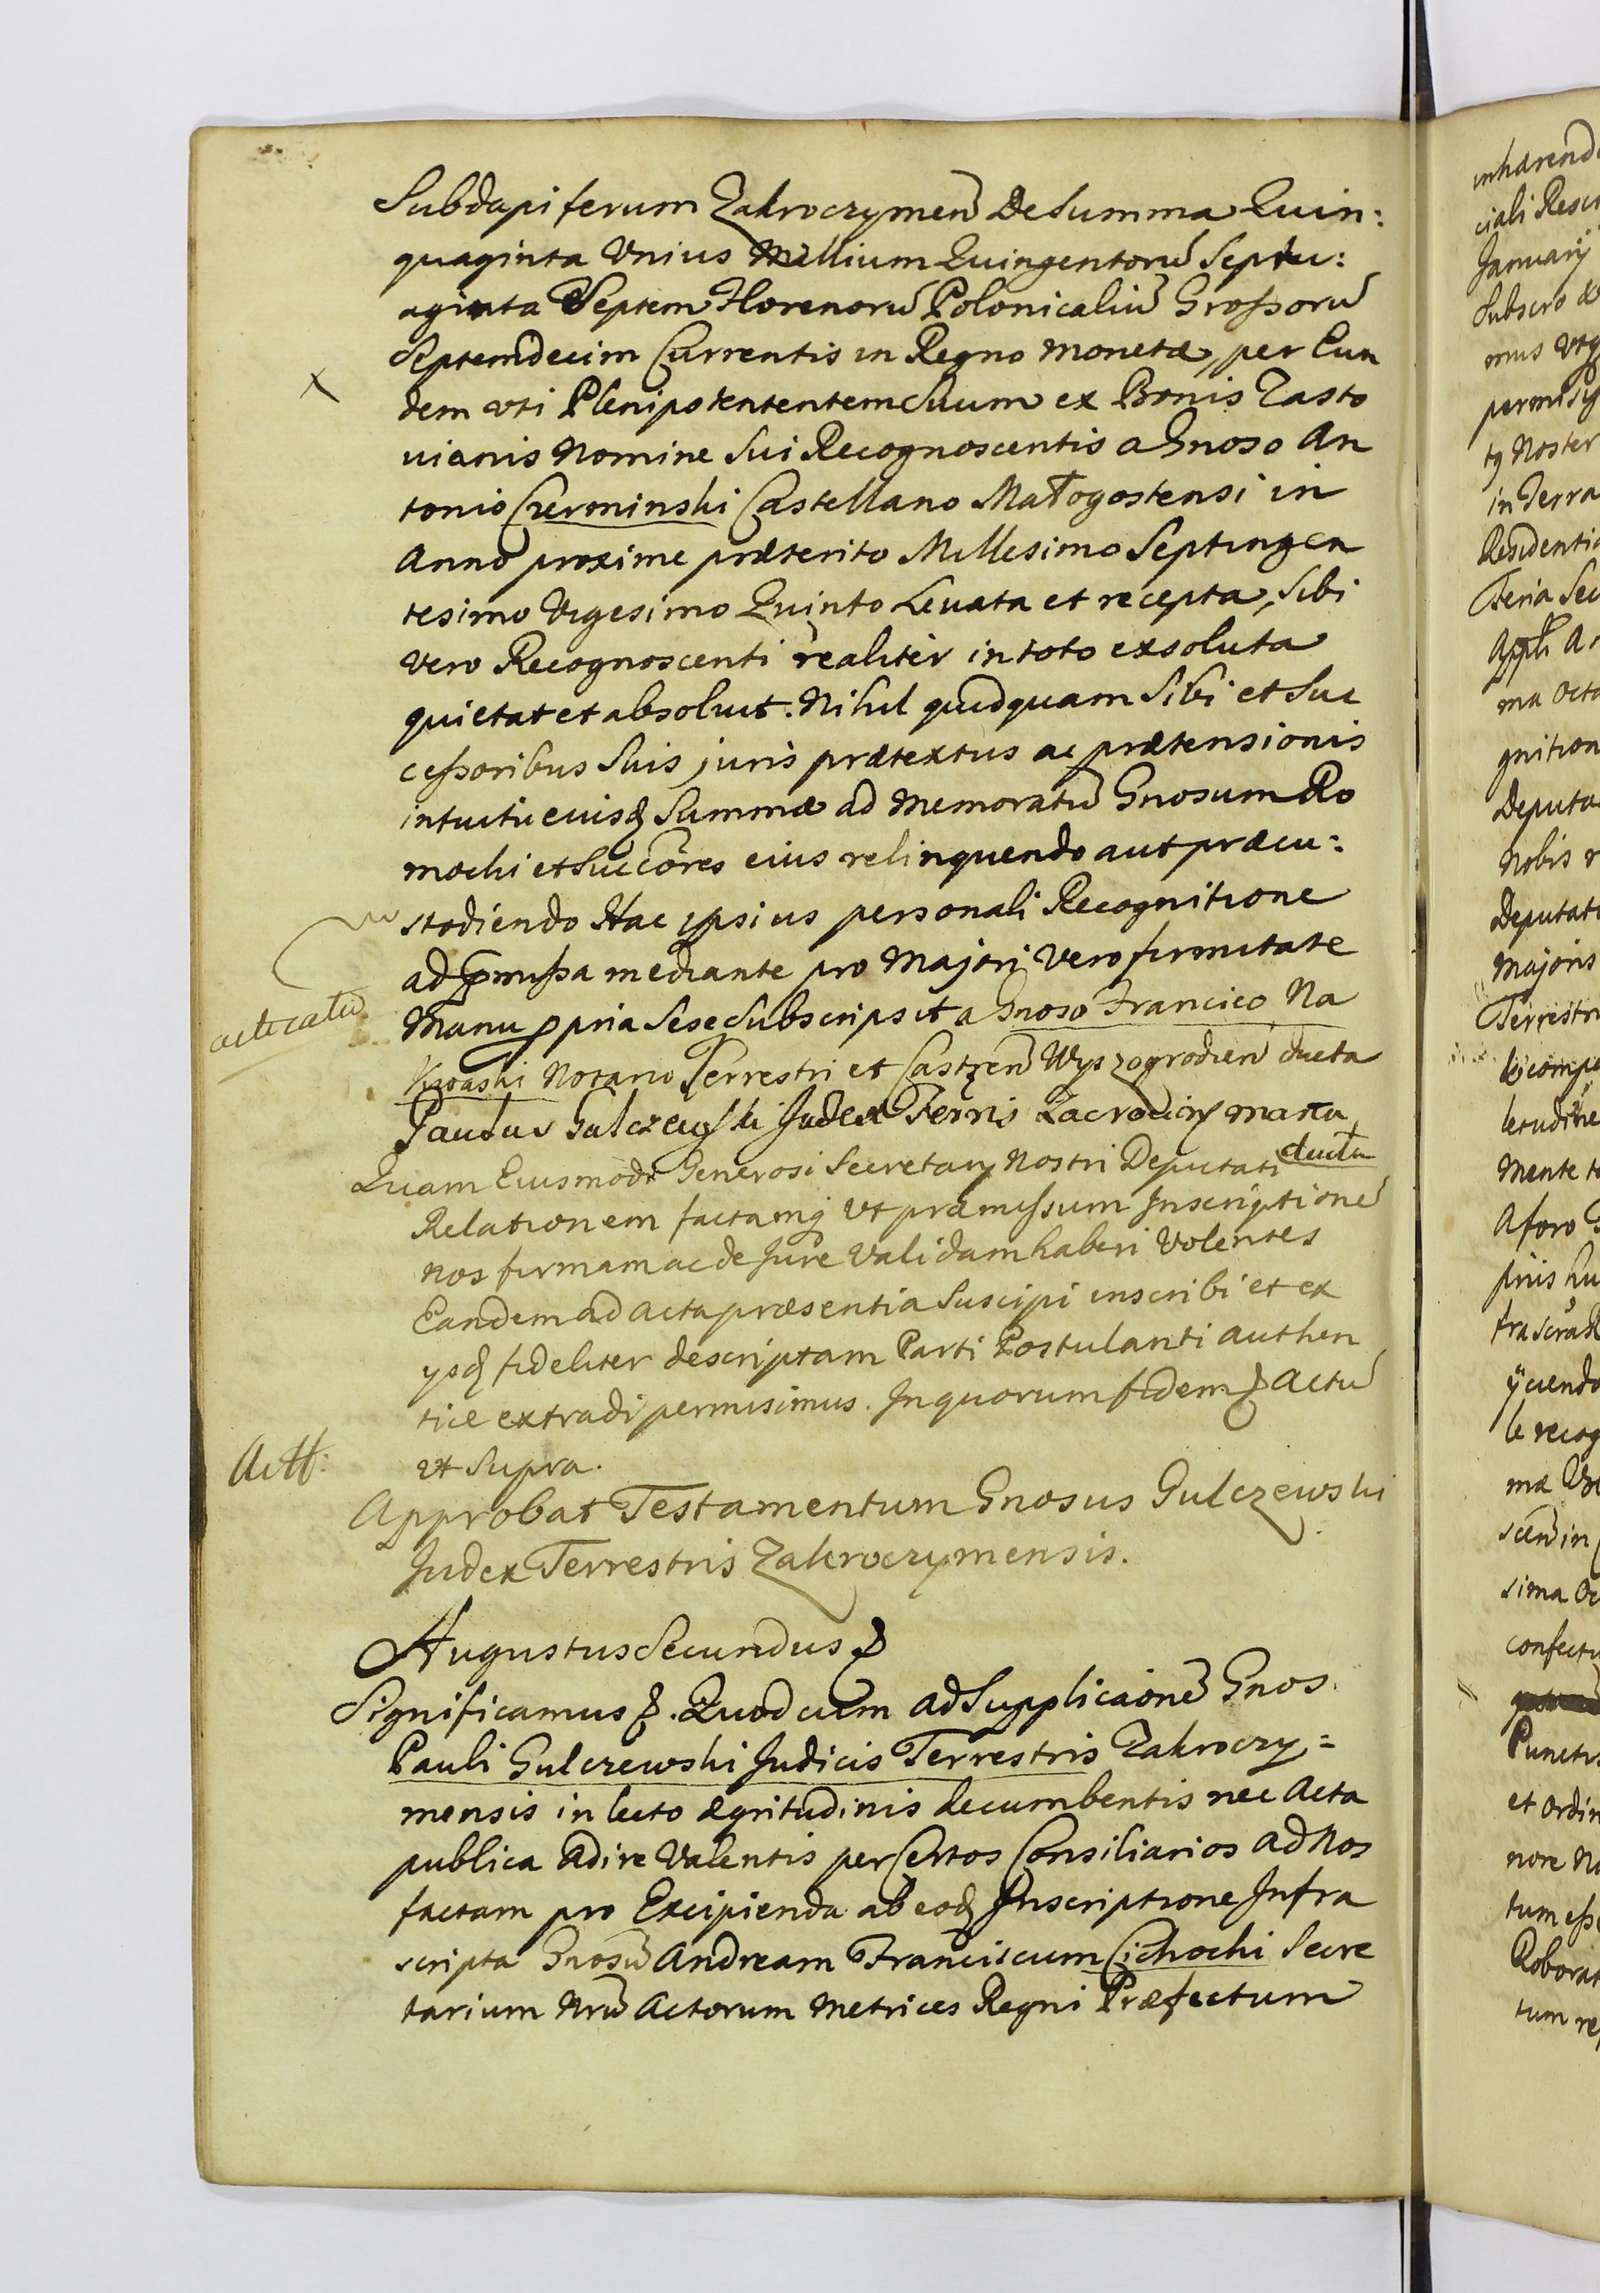 Subdapiferum Zakroczymen De Summa Quin:
quaginta Unius Millium Quingentorū Septu:
aginta Septem Florenorū Polonicaliū Grossorū
Septemdecim Currentis in Regno Monetæ, per Eun
dem vti Plenipotententem Suum ex Bonis Zasto
uianis Nomine Sui Recognoscentis a Gnoso An
tonio Czerminski Castellano Małogostensi in
Anno proxime præterito Millesimo Septingen
tesimo Vigesimo Quinto Levata et recepta, Sibi
vero Recognoscenti realiter in toto exsoluta
quietat et absoluit. Nihil quidquam Sibi et Suc
cessoribus Suis juris prætextus ac prætensionis
intuitu eiusq Summæ ad Memoratū Gnosum Ro
mocki et Succōres eius relinquendo aut præcu:
stodiendo Hac ipsius personali Recognitione
ad præmissa mediante pro Majori vero firmitate
Manu ppria Sese Subscripsit a Gnoso Francico Na
kwaski Notario Terrestri et Castren Wyszogrodien ducta
acticatū
Paulus Gulczewski Judex Terris Zacrocimy manu
ducta
Quam Eiusmodi Generosi Secretarij Nostri Deputati
Relationem factamq vt præmissum Inscriptionē
nos firmam ac de Jure validam haberi Volentes
Eandem ad acta præsentia Suscipi inscribi et ex
ysq fideliter descriptam Parti Postulanti authen
tice extradi permisimus. In quorum fidem & Actū
vt Supra.
Actt:
Approbat Testamentum Gnosus Gulczewski
Judex Terrestris Zakroczymensis.
Augustus Secundus &
Significamus &. Quod cum ad Supplicāonē Gnos.
Pauli Gulczewski Judicis Terrestris Zakroczy=
mensis in lecto ægritudinis decumbentis nec Acta
publica Adire Valentis per Certos Consiliarios ad Nos
factam pro Excipienda ab eoq Inscriptione Infra
scripta Gnosū Andream Franciscum Cichocki Secre
tarium Nrū Actorum Metrices Regni Præfectum
inhærend
ciali Resc
January
Subscro
mus vtq
permis
tq Noster
in Terra
Residentia
Feria Sec
Appli
ma Octa
gnition
Deputa
nobis r
Deputat
Majoris
Terrestr
le compe
letudine
mente
A foro
priis hu
yciendo
le recog
scen in
sima Oc
confectu
Punctis
et ordin
nore No
tum esse
Roborat
tum re